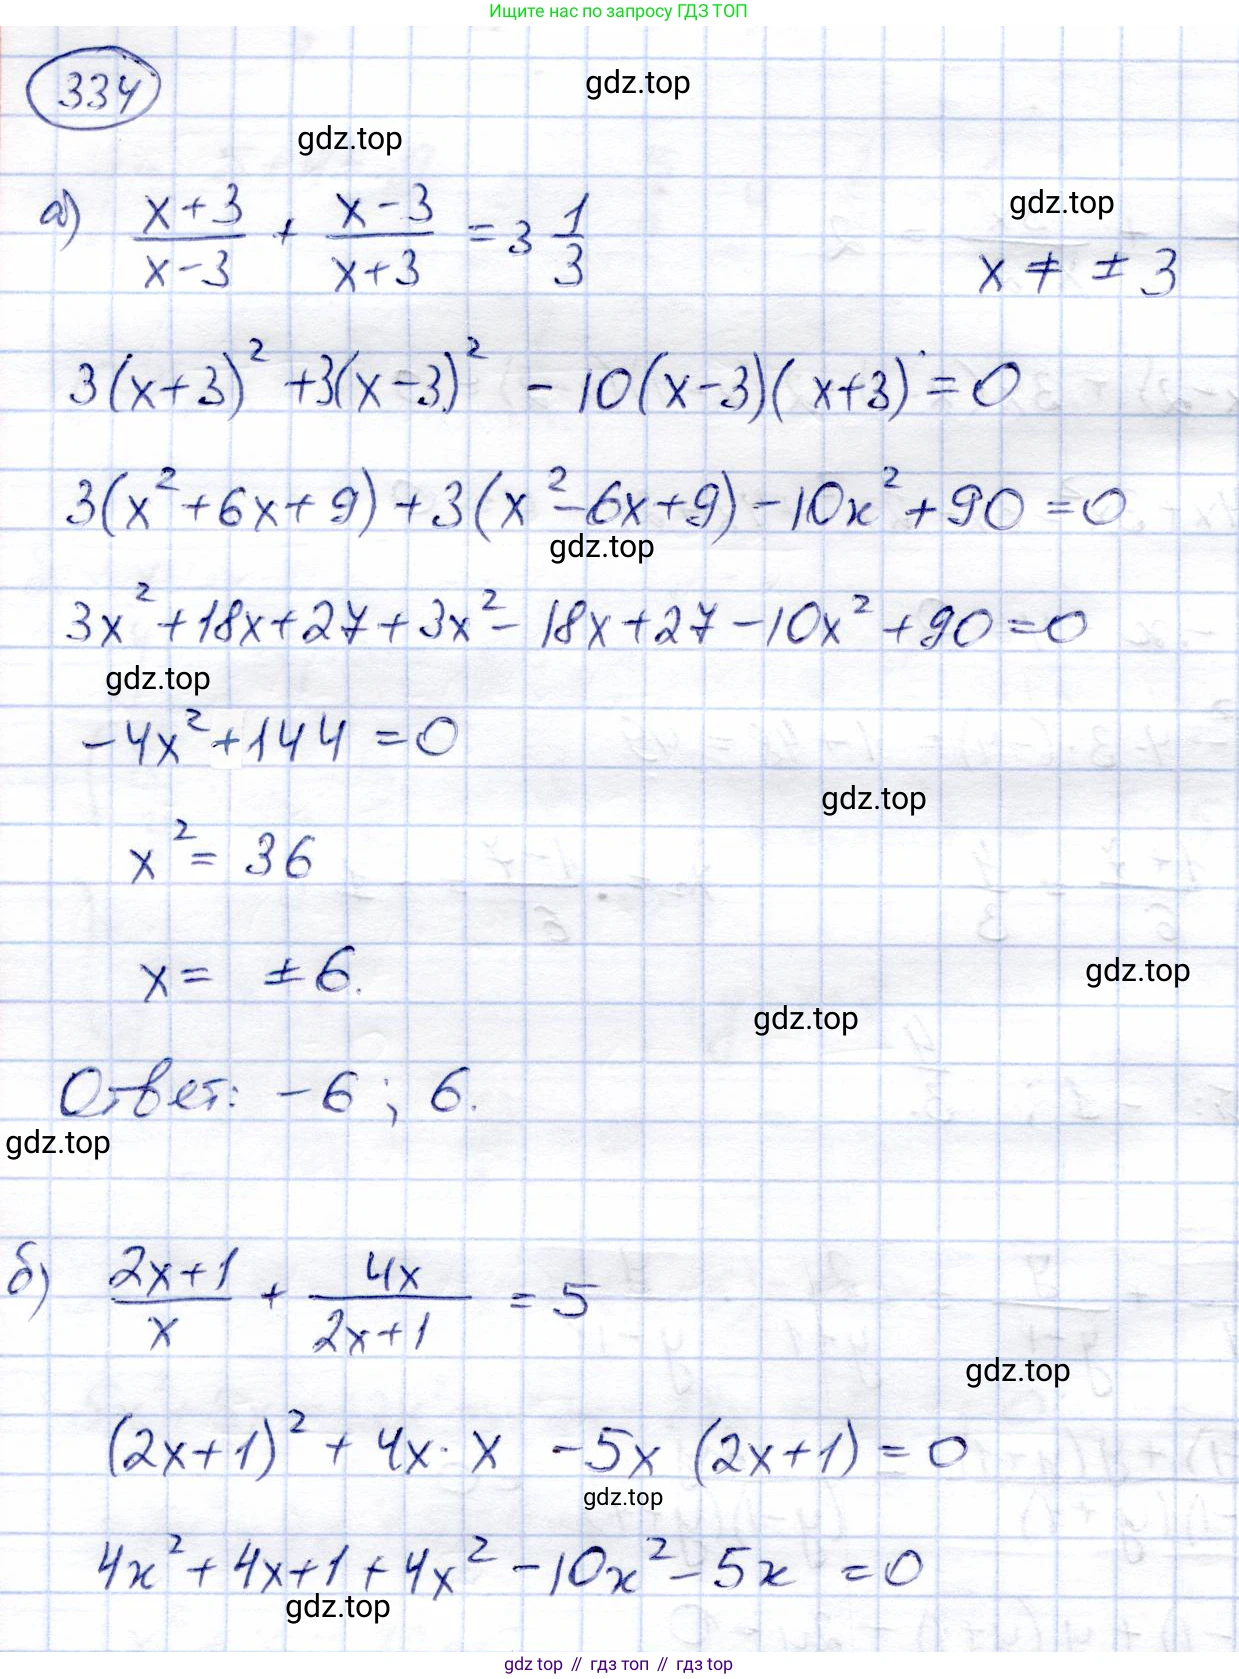 Ищите нас по запросу ГДЗ ТОП
334
gdz.top
gdz.top
а) (x+3)/(x-3) + (x-3)/(x+3) = 3 1/3
gdz.top
x ≠ ± 3
3(x+3)² +3(x-3)² - 10(x-3)(x+3) = 0
3(x²+6x+9)+3(x²-6x+9)-10x²+90=0
gdz.top
3x²+18x+27+3x²-18x+27-10x²+90=0
gdz.top
-4x²+144=0
gdz.top
x²= 36
x= ±6.
gdz.top
gdz.top
Ответ: -6; 6.
gdz.top
б) (2x+1)/x + 4x/(2x+1) = 5
gdz.top
(2x+1)² + 4x·x -5x (2x+1)=0
gdz.top
4x²+4x+1+4x²-10x²-5x=0
gdz.top
gdz top // гдз топ // gdz top